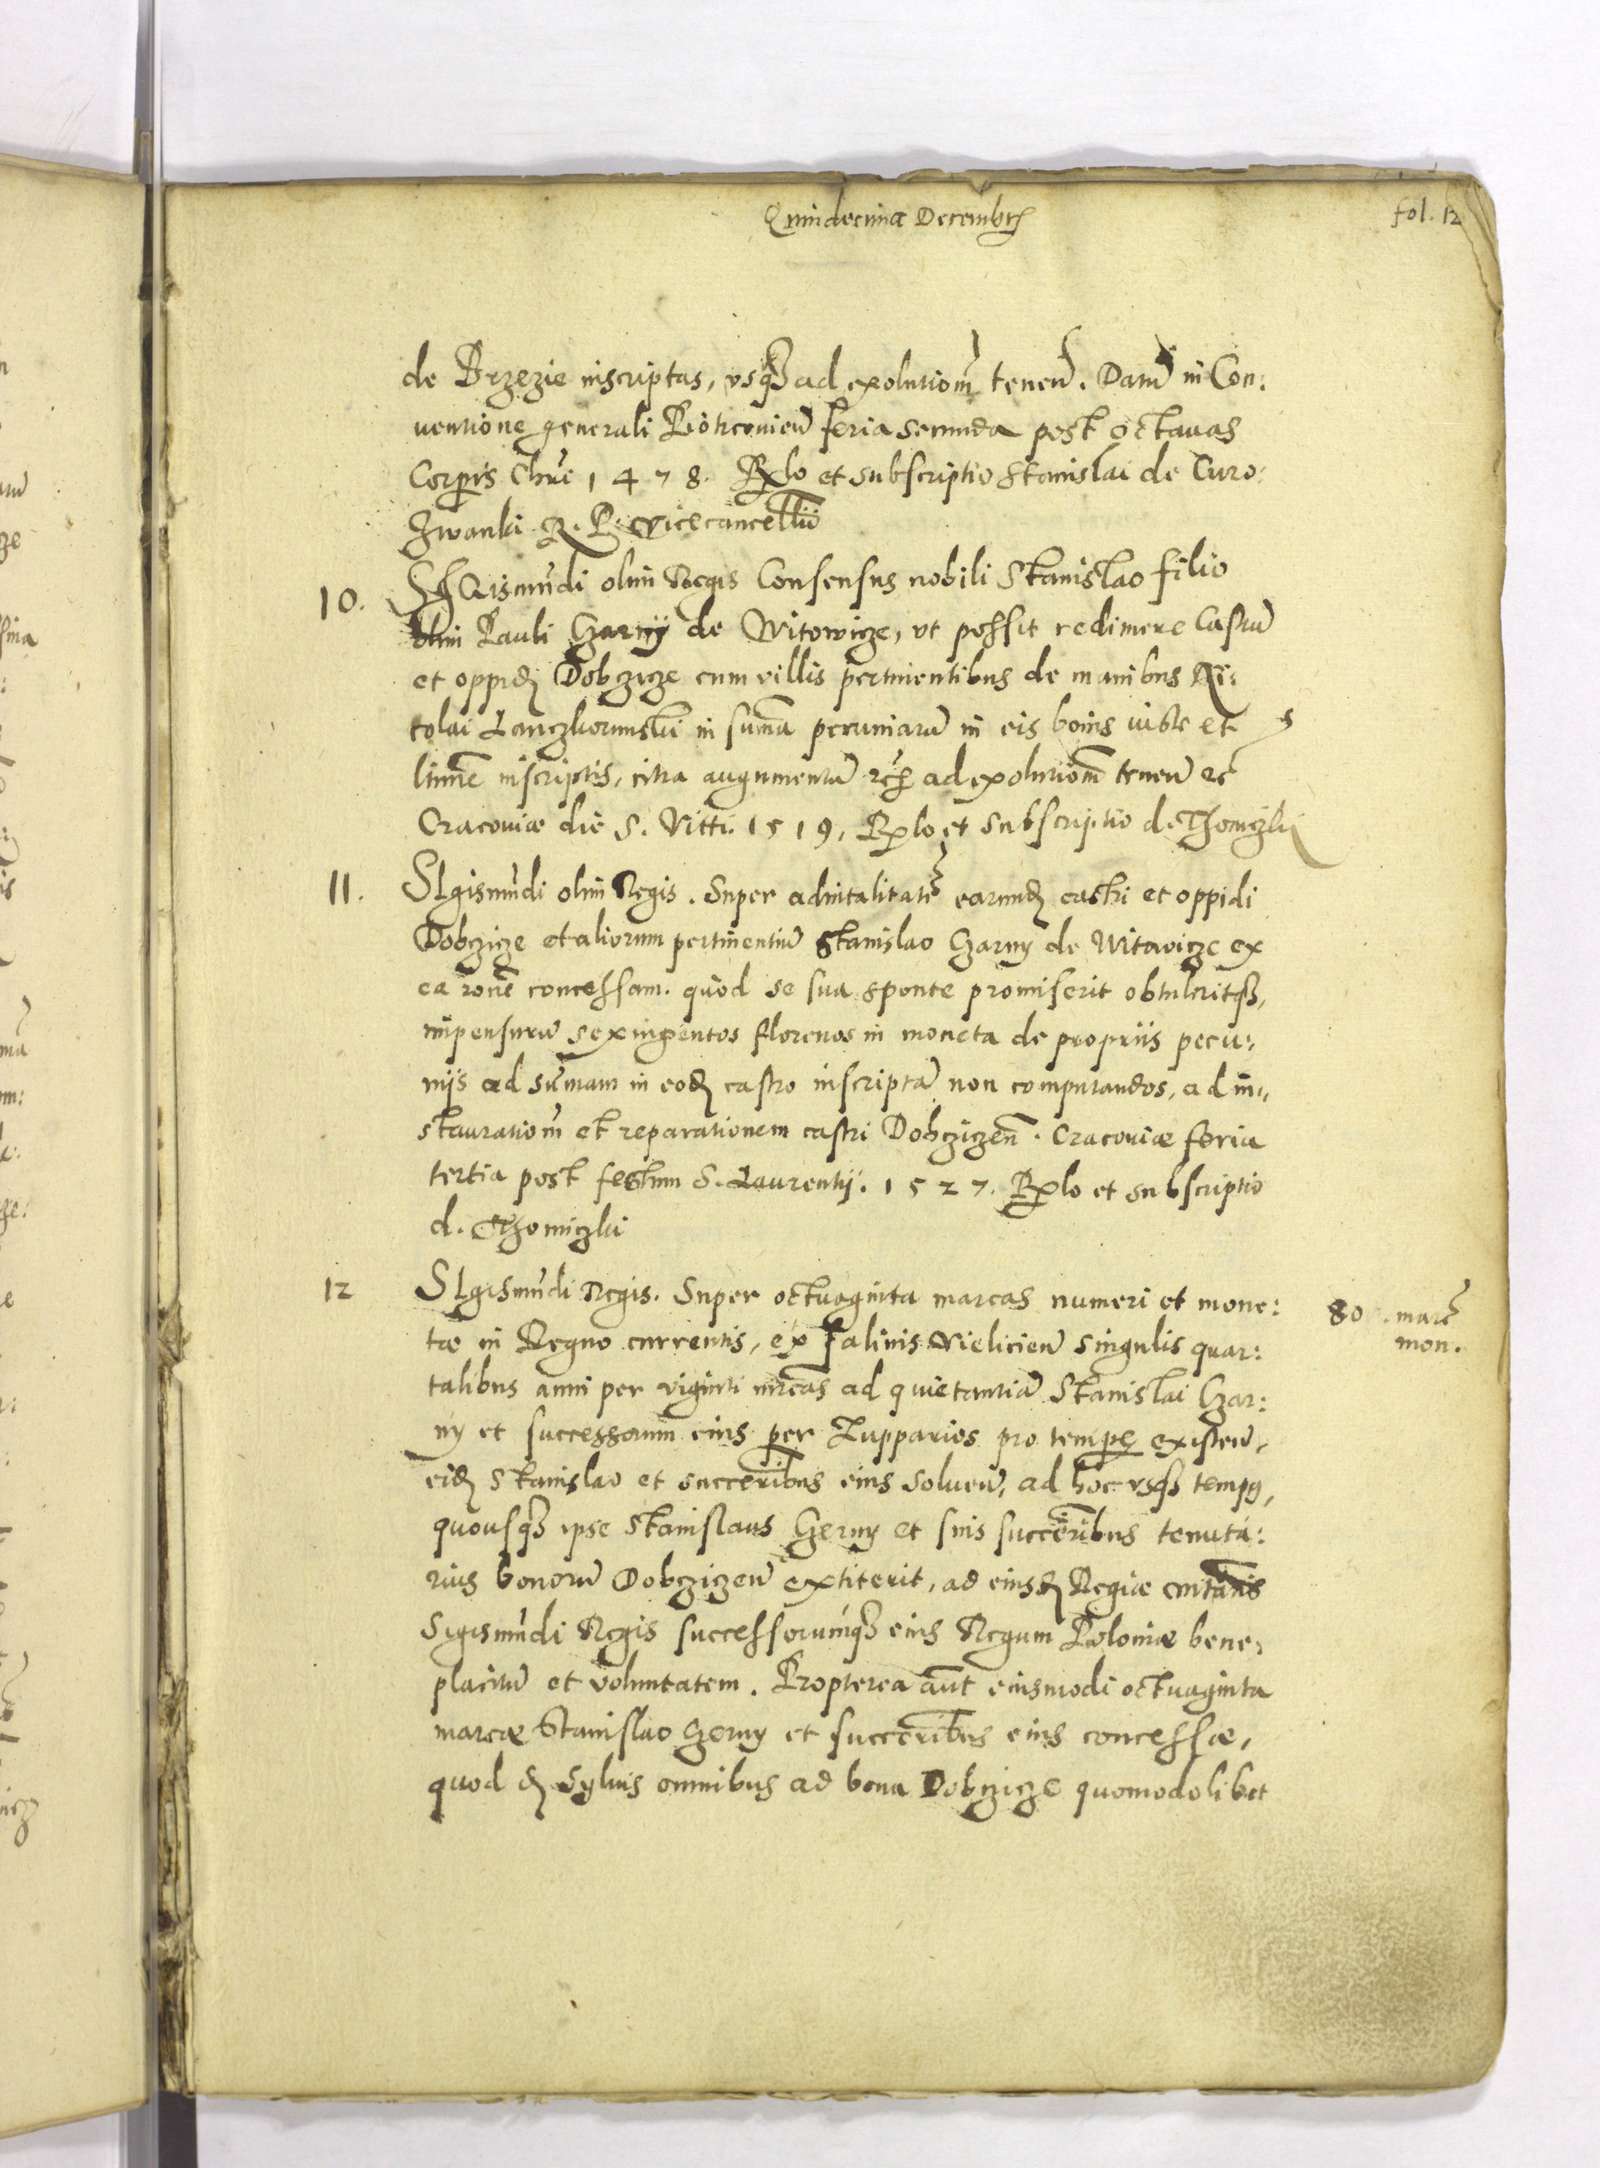 Quindecima Decembris
fol. 12
de Brzezie inscriptas, usq3 ad exolutiom̃ teneñ. Datũ in Con:
ventione generali Piotrcovieñ feria secunda post octavas
Corpis Chri 1478. Rlo et subscriptio Stanislai de Curo:
zwanki R. P. vicecancellii
10. Sigismũdi olim Regis Consensus nobili Stanislao filio
olim Pauli Czarny de Witowicze, ut possit redimere Castrũ
et oppid. Dobczicze cum villis pertinentibus de manibus Ni:
colai Lanczkorunski in sum̃a pecuniarũ in eis bonis iuste et
lit̃tme inscriptis, citra augumentũ ad exolutiom̃ teneñ etc̃
Cracoviæ die S. Vitti. 1519, Rlo et subscriptio d. Thomiczki
11. SIgismũdi olim Regis. Super advitalitatẽ earund. castri et oppidi
Dobczicze et aliorum pertinentiũ Stanislao Czarny de Witowicze ex
ea rone concessam. quòd se sua sponte promiserit obtuleritq3,
impensurũ sexingentos florenos in moneta de propriis pecu:
nijs ad sũmam in eod. castro inscriptã non computandos, ad in:
stauratiom̃ et reparationem castri Dobcziczeñ. Cracoviæ feria
tertia post festum S. Laurentij. 1527. Rlo et subscriptio
d. Thomiczki
12 SIgismũdi Regis. Super octuaginta marcas numeri et mone:
tæ in Regno currentis, ex Salinis Vielicieñ singulis quar:
talibus anni per viginti mrcas ad quietantiã Stanislai Czar:
ny et successorum eius per Zupparios pro tempe existeñ,
eid. Stanislao et succeribus eius solveñ, ad hoc usq3 temps,
quousq3 ipse Stanislaus Czerny et suis succeribus tenuta:
rius bonorũ Dobcziczeñ extiterit, ad eiusd. Regiæ
Sigismũdi Regis successorumq3 eius Regum Poloniæ bene:
placitũ et voluntatem. Propterea aũt eiusmodi octuaginta
marcæ Stanislao Czerny et succeribus eius concessæ,
quod d. sylvis omnibus ad bona Dobczicze quomodolibet
80. marc̃
mon.